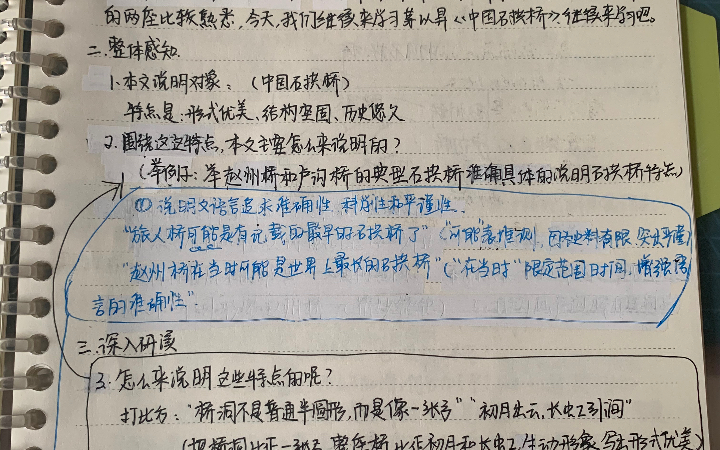 的两座比较熟悉,今天,我们继续来学习茅以昇《中国石拱桥》继续来学习吧。
二、整体感知
1.本文说明对象:(中国石拱桥)
特点是:形式优美、结构坚固、历史悠久
2.围绕这些特点,本文主要怎么来说明的?
(举例子:举赵州桥和卢沟桥的典型石拱桥准确具体的说明石拱桥特点)
① 说明文语言追求准确性、科学性和严谨性.
"旅人桥可能是有记载的最早的石拱桥了"("可能"表推测,因史料有限,突出严谨)
"赵州桥在当时可能是世界上最长的石拱桥"("在当时"限定范围时间,增强语
言的准确性"
三、深入研读
3.怎么来说明这些特点的呢?
打比方:"桥洞不是普通半圆形,而是像一张弓""初月出云,长虹饮涧"
(把桥洞比作一张弓,整座桥比作初月和长虹,生动形象,写出形式优美)